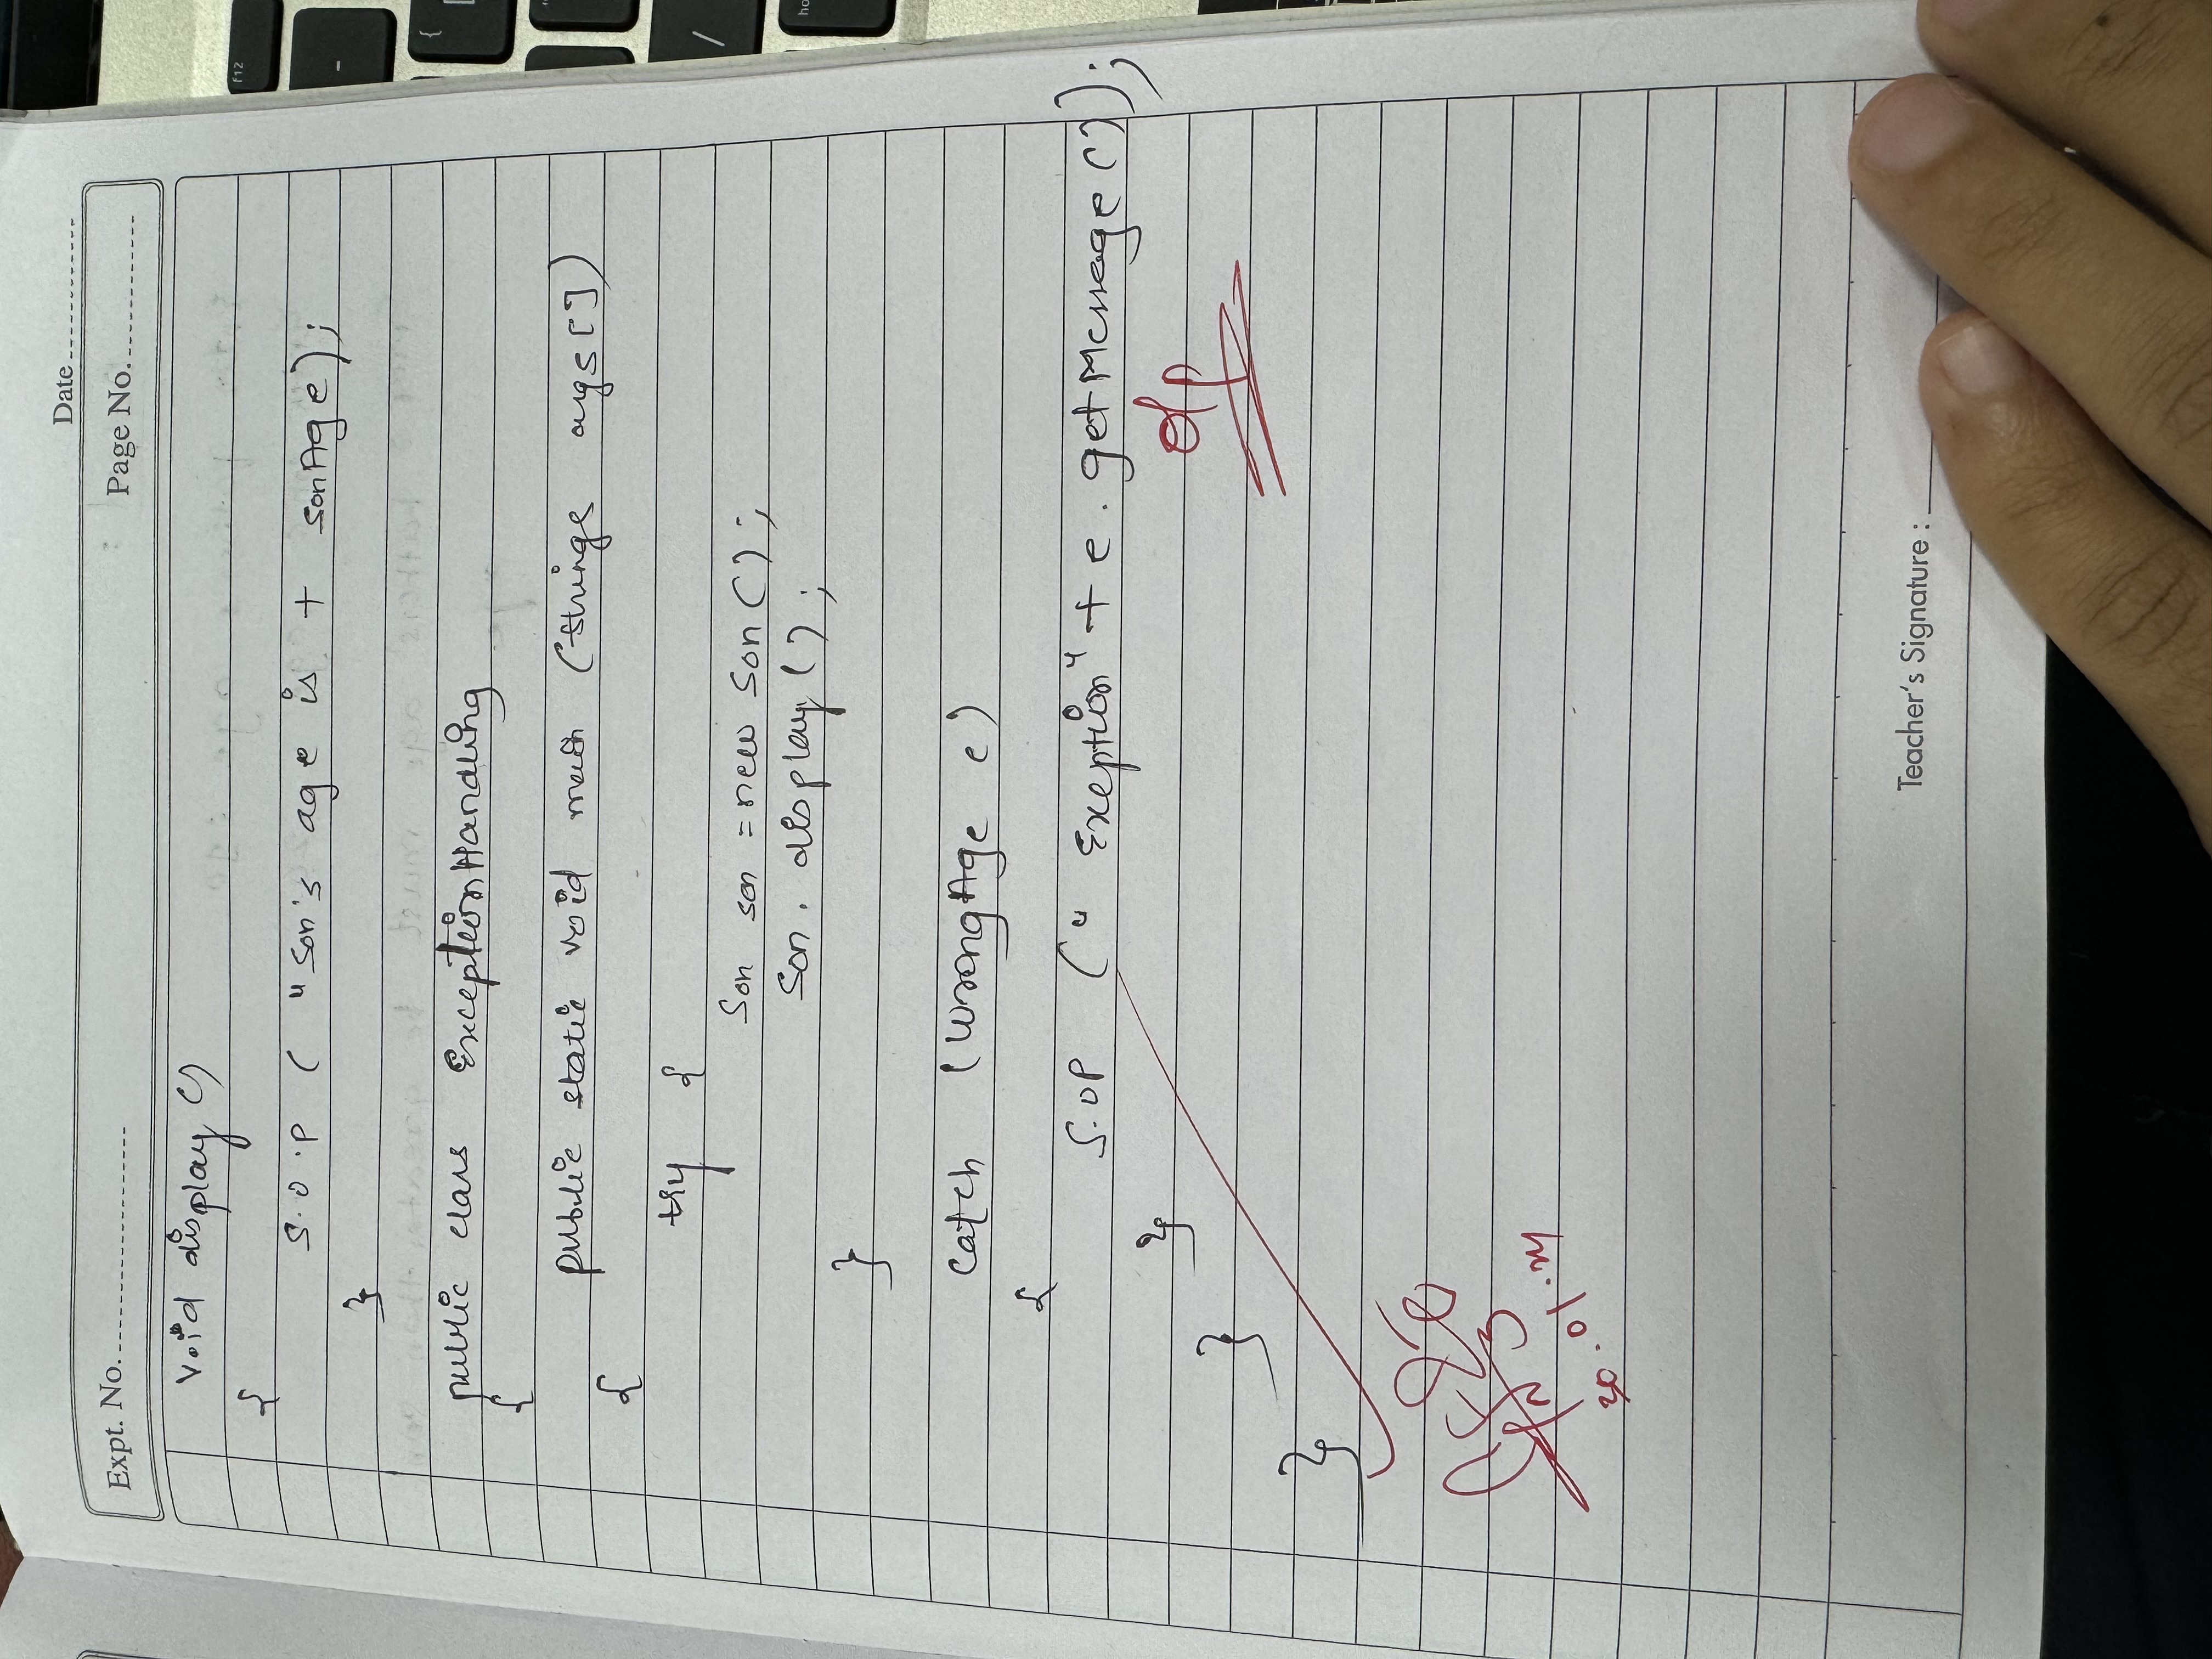 Date
Expt. No.
Page No.
void display ()
{
S.O.P ( "Son's age is + SonAge);
}
public class ExceptionHandling
{
public static void main (Strings args[])
{
try {
Son son = new Son();
Son. display();
}
catch (WrongAge e)
{
S.OP (" Exeption" + e. getMessage());
}
}
}
o/p
30.01.24
Teacher's Signature :